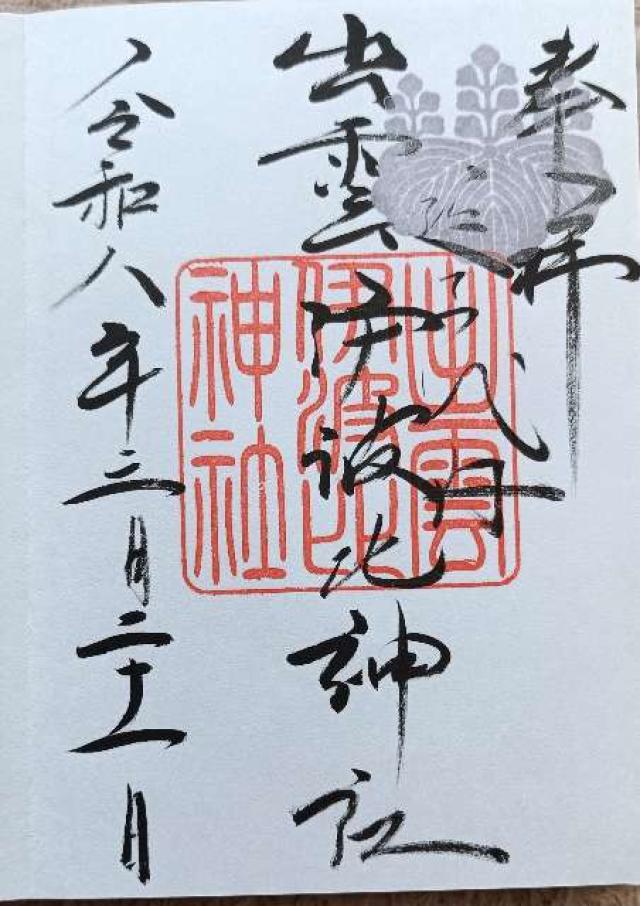 奉拝
延喜式内
出雲伊波比神社
令和八年三月二十一日
出雲
伊波比
神社